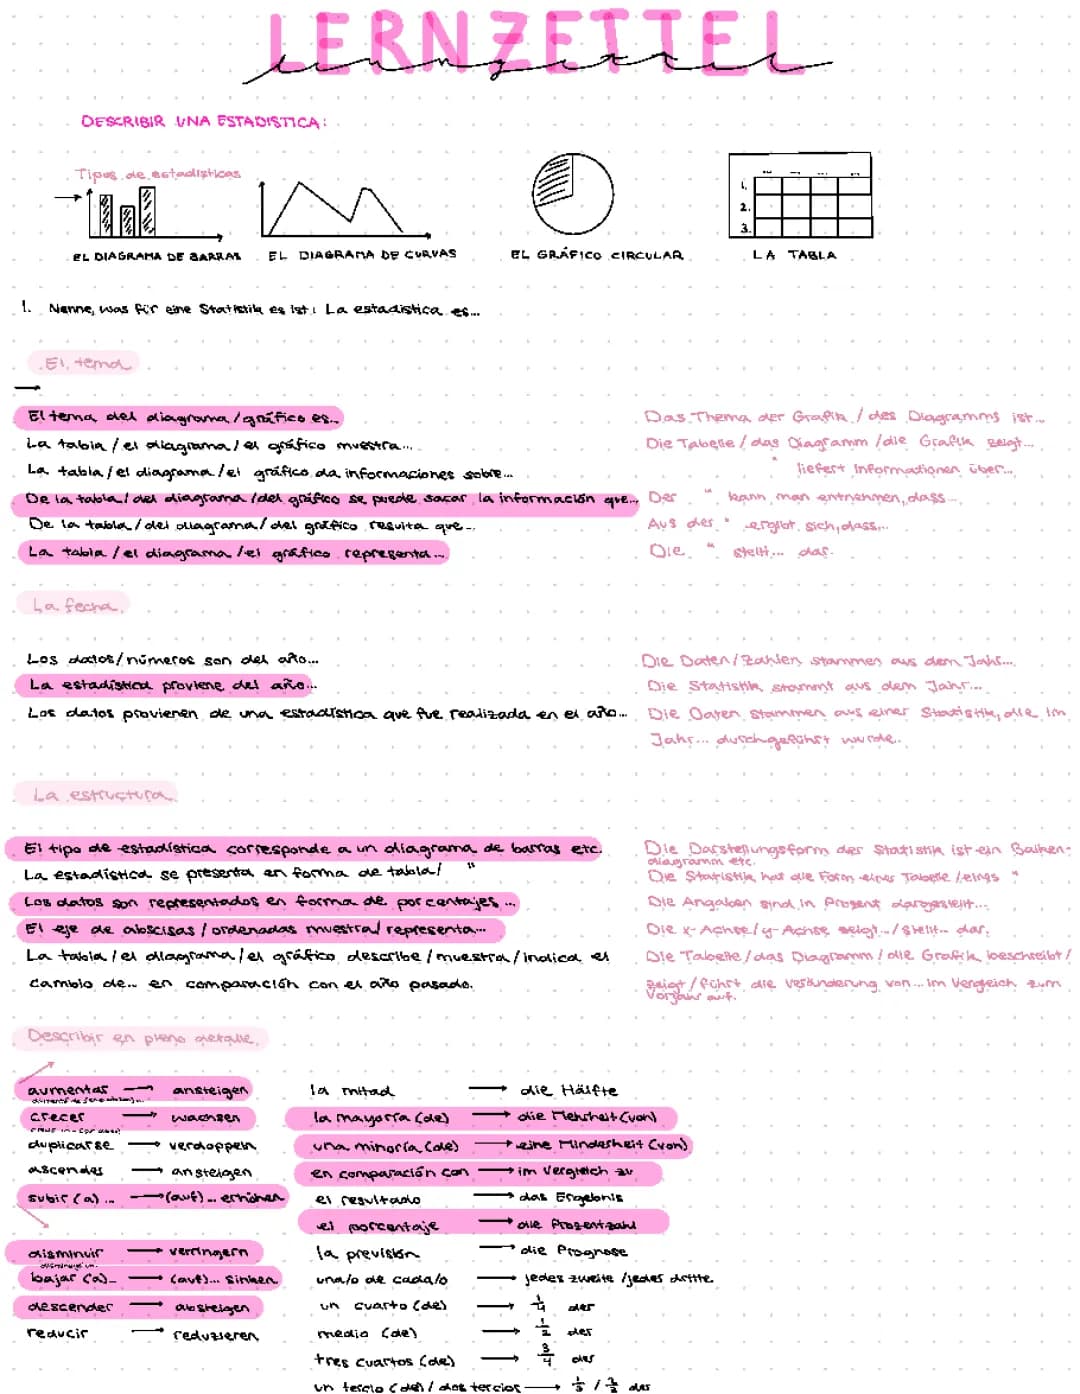 LERNZETTEL
lernzettel
DESCRIBIR UNA ESTADISTICA:
Tipos de estadisticas
EL DIAGRAMA DE BARRAS
EL DIAGRAMA DE CURVAS
EL GRÁFICO CIRCULAR
1.
2.
3.
LA TABLA
1. Nenne, was für eine Statistik es ist: La estadistica es...
El tema
El tema del diagrama/gráfico es... Das Thema der Grafik / des Diagramms ist...
La tabla / el diagrama / el gráfico muestra... Die Tabelle / das Diagramm / die Grafik zeigt...
La tabla / el diagrama / el gráfico da informaciones sobre... " liefert Informationen über...
De la tabla / del diagrama / del gráfico se puede sacar la información que... Der " kann man entnehmen, dass...
De la tabla / del diagrama / del gráfico resulta que... Aus der " ergibt sich, dass...
La tabla / el diagrama / el gráfico representa... Die " stellt... dar.
La fecha
Los datos/números son del año... Die Daten/Zahlen stammen aus dem Jahr...
La estadística proviene del año... Die Statistik stammt aus dem Jahr...
Los datos provienen de una estadística que fue realizada en el año... Die Daten stammen aus einer Statistik, die im
Jahr... durchgeführt wurde.
La estructura
El tipo de estadística corresponde a un diagrama de barras etc. Die Darstellungsform der Statistik ist ein Balken-
diagramm etc.
La estadística se presenta en forma de tabla/ " Die Statistik hat die Form einer Tabelle / eines "
Los datos son representados en forma de porcentajes... Die Angaben sind in Prozent dargestellt...
El eje de abscisas / ordenadas muestra/ representa... Die x-Achse/y-Achse zeigt.../stellt... dar.
La tabla / el diagrama / el gráfico describe / muestra / indica el Die Tabelle / das Diagramm / die Grafik beschreibt /
cambio de... en comparación con el año pasado. zeigt / führt die Veränderung von... im Vergleich zum
Vorjahr auf.
Describir en pleno detalle.
aumentar → ansteigen
crecer → wachsen
duplicarse → verdoppeln
ascender → ansteigen
subir (a)... → (auf)... erhöhen
disminuir → verringern
bajar (a)... → (auf)... sinken
descender → absteigen
reducir → reduzieren
la mitad → die Hälfte
la mayoría (de) → die Mehrheit (von)
una minoría (de) → eine Minderheit (von)
en comparación con → im Vergleich zu
el resultado → das Ergebnis
el porcentaje → die Prozentzahl
la previsión → die Prognose
una/o de cada/o → jedes zweite / jedes dritte
un cuarto (de) → 1/4 der
medio (de) → 1/2 der
tres cuartos (de) → 3/4 der
un tercio (de) / dos tercios → 1/3 / 2/3 der